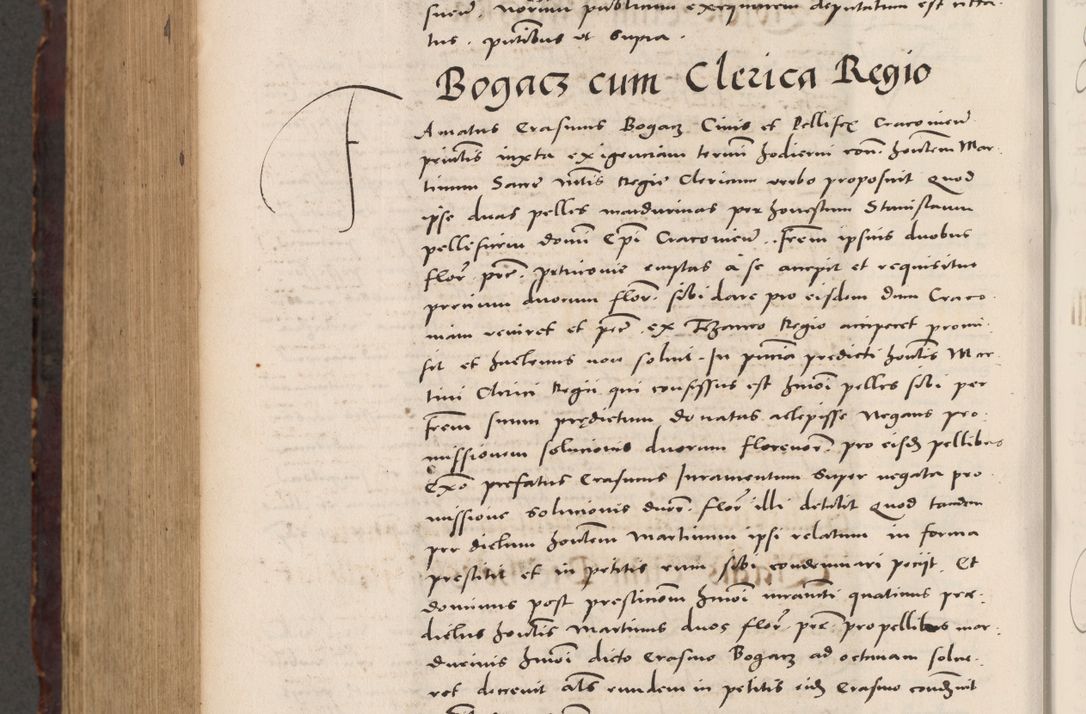 tus . pntibus ut supra .
Bogacz cum Clerica Regio
Famatus Erasmus Bogacz Civis et Pellifex Cracovien
pntis iuxta exigenciam termi hodierni con. hontem Mar-
tinum Sacre Mtis Regie Clericum verbo proposuit Quod
ipse duas pelles mardurinas per honestum Stanislaum
pellificem domi Epi Cracovien . frem ipsius duobus
flor. pre. emptas a se accepit et requisitus
precium duorum flor. sibi dare pro eisdem dum Craco-
viam veniret et pre. ex Tezauro Regio acciperet promi-
sit et hucusque non solvit . In pntia predicti hontis Mar-
tini Clerici Regii qui confessus est hmoi pelles sibi per
frem suum predictum donatas accepisse Negans pro-
missionem solucionis duorum florenor. pro eisdem pellibus
Exo prefatus Erasmus Iuramentum super negata pro-
missione solucionis duor. flor. illi detulit Quod tandem
per dictum hontem Martinum ipsi relatum in forma
prestitit et in petitis eum sibi condemnari peciit . Et
dominus post prestitionem hmoi iuramti quatinus pre-
dictus hontis Martinus duos flor. pre. pro pellibus mar-
durinis hmoi dicto Erasmo Bogacz ad octavam solve-
ret decrevit als eundem in petitis eidem Erasmo condemnavit